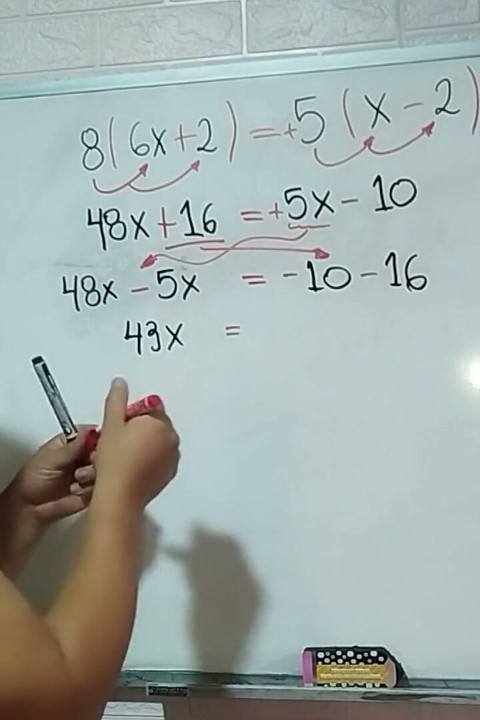 8(6x+2)=+5(x-2)
48x+16=+5x-10
48x-5x=-10-16
43x=